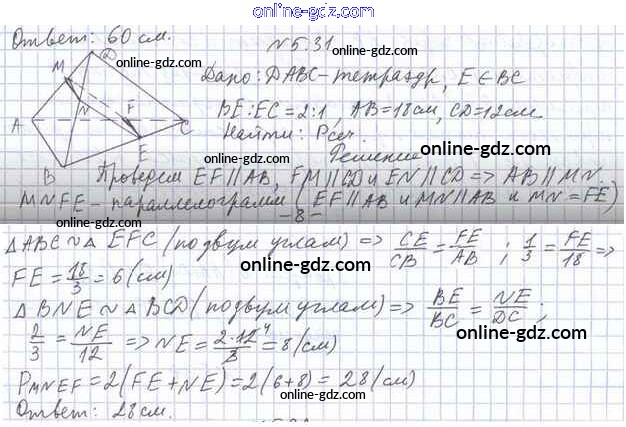 online-gdz.com
Ответ: 60 см.
№5.31
online-gdz.com
Дано: DABC-тетраэдр, E∈BC
BE:EC=2:1, AB=18см, CD=12см.
online-gdz.com
Найти: Pсеч.
online-gdz.com
Решение
M D N F A C E B
Проведем EF||AB, FM||CD и EN||CD => AB||MN.
MNFE-параллелограмм (EF||AB и MN||AB и MN=FE)
online-gdz.com
-8-
△ABC ~ △EFC (по двум углам) => CE/CB = FE/AB ; 1/3 = FE/18 =>
online-gdz.com
FE = 18/3 = 6 (см)
online-gdz.com
△BNE ~ △BCD (по двум углам) => BE/BC = NE/DC ;
2/3 = NE/12 => NE = 2·12⁴/3 = 8 (см)
online-gdz.com
PMNEF = 2(FE+NE) = 2(6+8) = 28 (см)
online-gdz.com
Ответ: 28см.
online-gdz.com